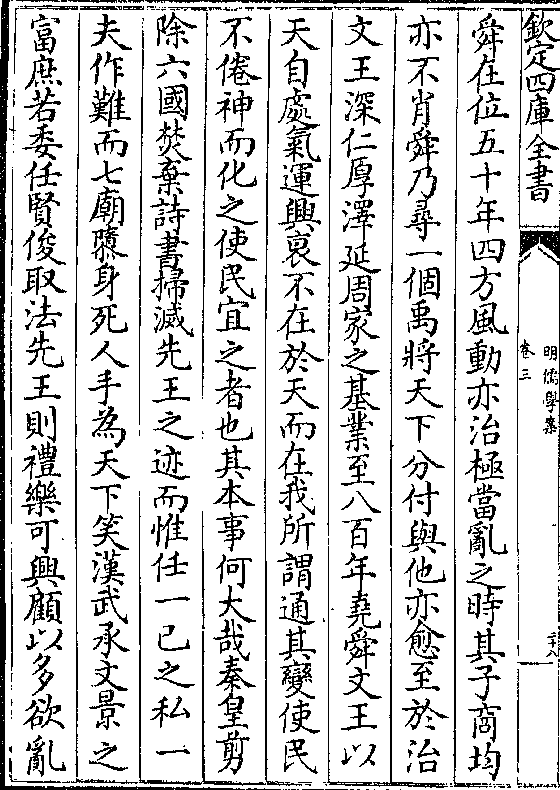 欽定四庫全書
明儒學案
卷三
舜在位五十年四方風動亦治極當亂之時其子商均
亦不肖舜乃尋一個禹將天下分付與他亦愈至於治
文王深仁厚澤延周家之基業至八百年堯舜文王以
天自處氣運興衰不在於天而在我所謂通其變使民
不倦神而化之使民宜之者也其本事何大哉秦皇剪
除六國焚棄詩書掃滅先王之迹而惟任一已之私一
夫作難而七廟隳身死人手為天下笑漢武承文景之
富庶若委任賢俊取法先王則禮樂可興顧以多欲亂